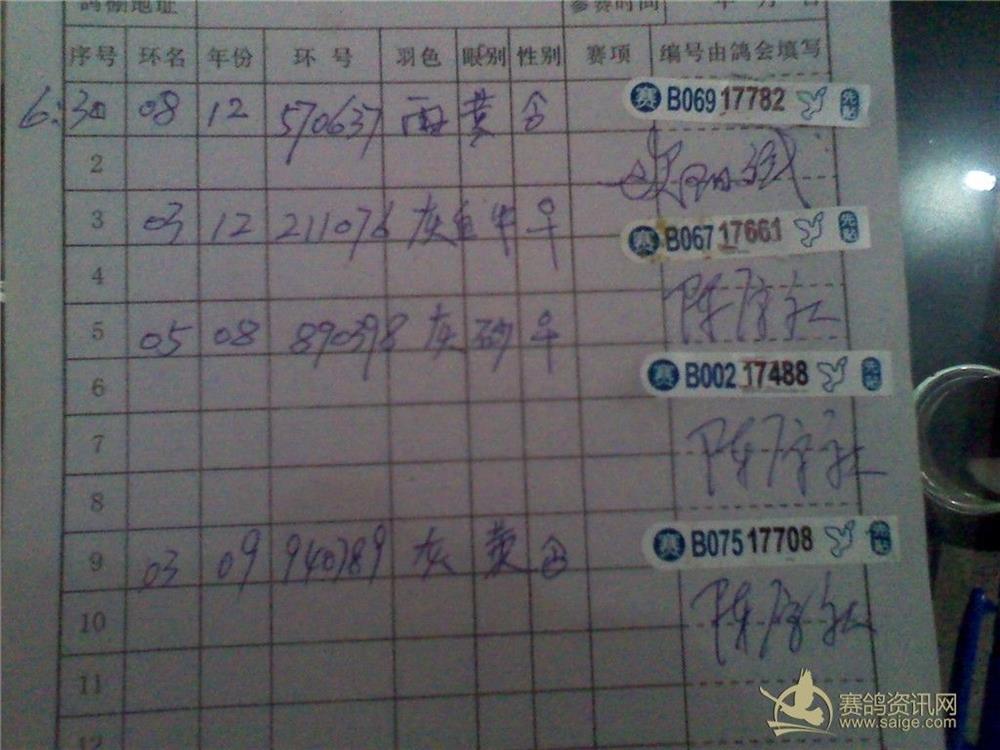 鸽棚地址 参赛时间 年 月 日
序号 环名 年份 环号 羽色 眼别 性别 赛项 编号由鸽会填写
6: 30 08 12 570637 雨 黄 赛 B069 17782
2
3 03 12 211076 灰 牛 ♀ 赛 B067 17661
4 陈
5 05 08 890398 灰 砂 ♀
6 赛 B002 17488
7 陈
8
9 03 09 940789 灰 黄 赛 B075 17708
10 陈
11
12
赛鸽资讯网
www.saige.com